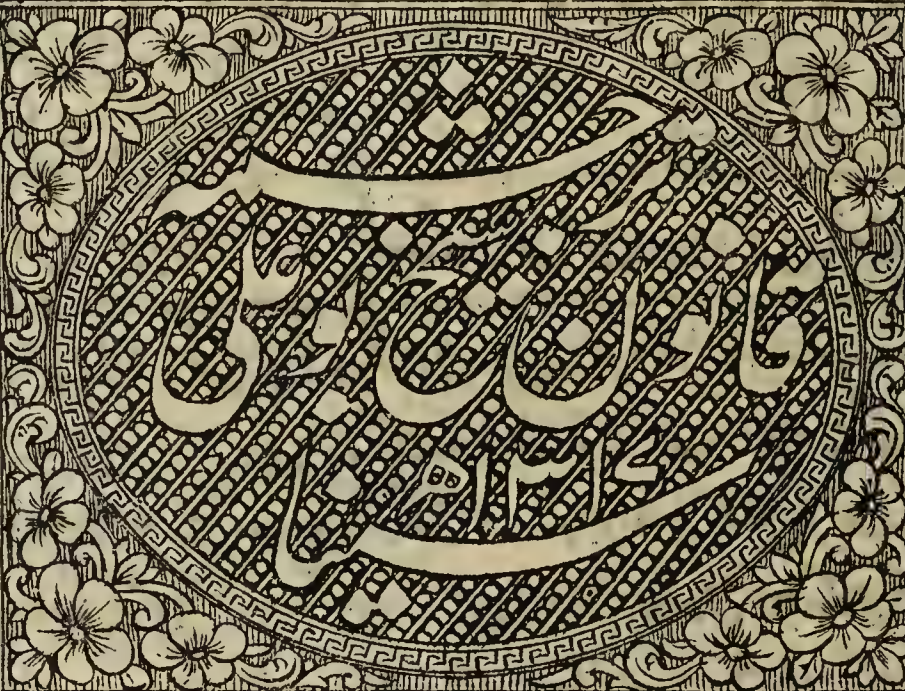 ترجمه
قانون شیخ بو علی
سینا
۱۳۱۷ھ